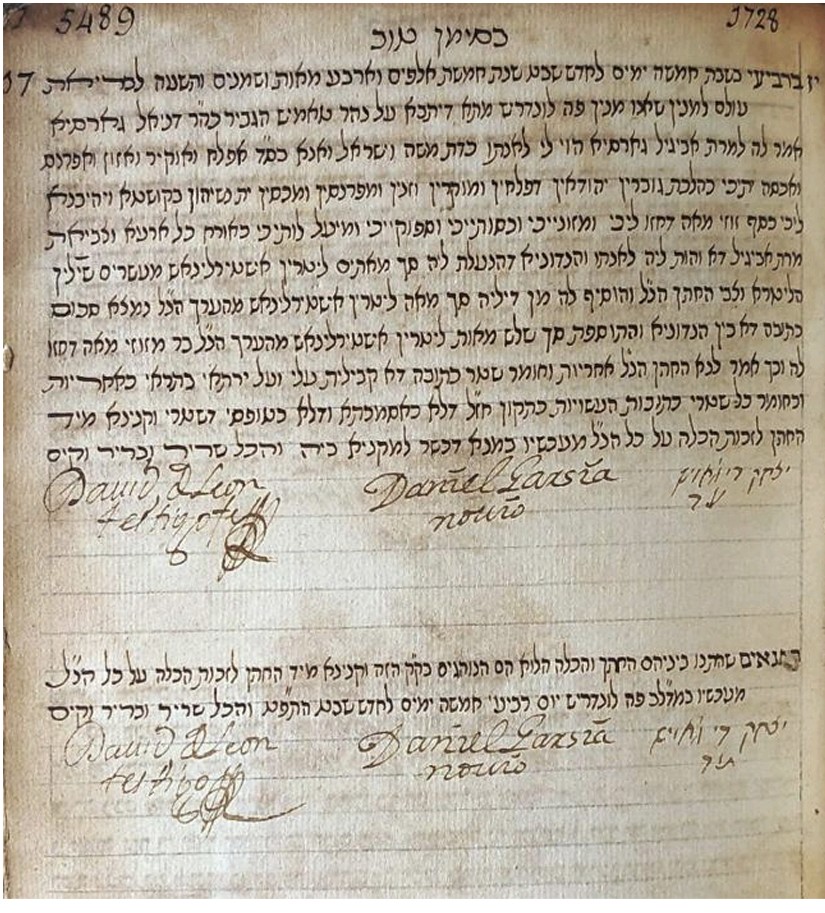 5489
1728
בסימן טוב
ברביעי בשבת חמשה ימים לחדש שבט שנת חמשת אלפים וארבע מאות ושמנים ותשעה לבריאת
עולם למנין שאנו מנין פה לונדריש מתא דיתבא על נהר טאמיש הגביר כה״ר דניאל גארסיא
אמר לה למרת אביגיל גארסיא הוי לי לאנתו כדת משה וישראל ואנא בס״ד אפלח ואוקיר ואזון ואפרנס
ואכסה יתיכי כהלכת גוברין יהודאין דפלחין ומוקרין וזנין ומפרנסין ומכסין ית נשיהון בקושטא ויהיבנא
ליכי כסף זוזי מאה דחזו ליכי ומזונייכי וכסותייכי וספוקייכי ומיעל לותיכי כאורח כל ארעא וצביאת
מרת אביגיל דא והות ליה לאנתו והנדוניא דהנעלת ליה סך מאתים ליטרין אשטירלינאש מעשרים שילין
הליטרא וצבי החתן הנ״ל והוסיף לה מן דיליה סך מאה ליטרין אשטירלינאש מהערך הנ״ל נמצא סכום
כתובה דא בין הנדוניא והתוספת סך שלש מאות ליטרין אשטירלינאש מהערך הנ״ל בר מזוזי מאה דחזו
לה וכך אמר לנא החתן הנ״ל אחריות וחומר שטר כתובה דא קבילית עלי ועל ירתאי בתראי כאחריות
וכחומר כל שטרי כתובות העשויות כתקון חז״ל דלא כאסמכתא ודלא כטופסי דשטרי וקנינא מיד
החתן לזכות הכלה על כל הנ״ל מעכשיו במנא דכשר למקניא ביה והכל שריר ובריר וקים
David de Leon Daniel Garsia יצחק די
testigo novio עד
התנאים שהתנו ביניהם החתן והכלה הלוא הם הנוהגים בק״ק הזה וקנינא מיד החתן לזכות הכלה על כל הנ״ל
מעכשיו במדל״ב פה לונדריש יום רביעי חמשה ימים לחדש שבט התפ״ט והכל שריר ובריר וקים
David de Leon Daniel Garsia יצחק די
testigo novio עד